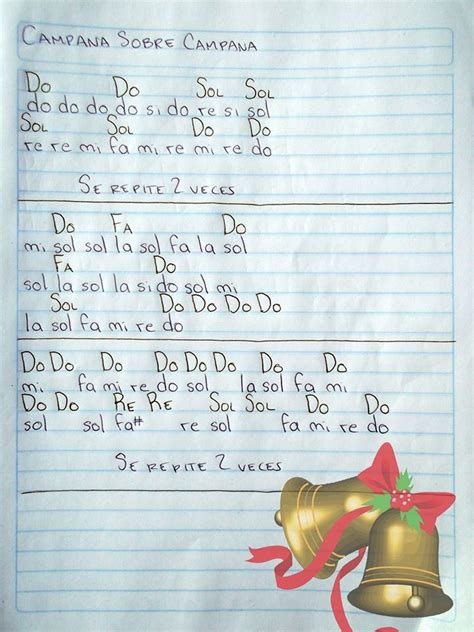 CAMPANA SOBRE CAMPANA
DO DO SOL SOL
do do do do si do re si sol
SOL SOL DO DO
re re mi fa mi re mi re do
SE REPITE 2 VECES
DO FA DO
mi sol sol la sol fa la sol
FA DO
sol la sol la si do sol mi
SOL DO DO DO DO
la sol fa mi re do
DO DO DO DO DO DO DO DO
mi fa mi re do sol la sol fa mi
DO DO RE RE SOL SOL DO DO
sol sol fa# re sol fa mi re do
SE REPITE 2 VECES